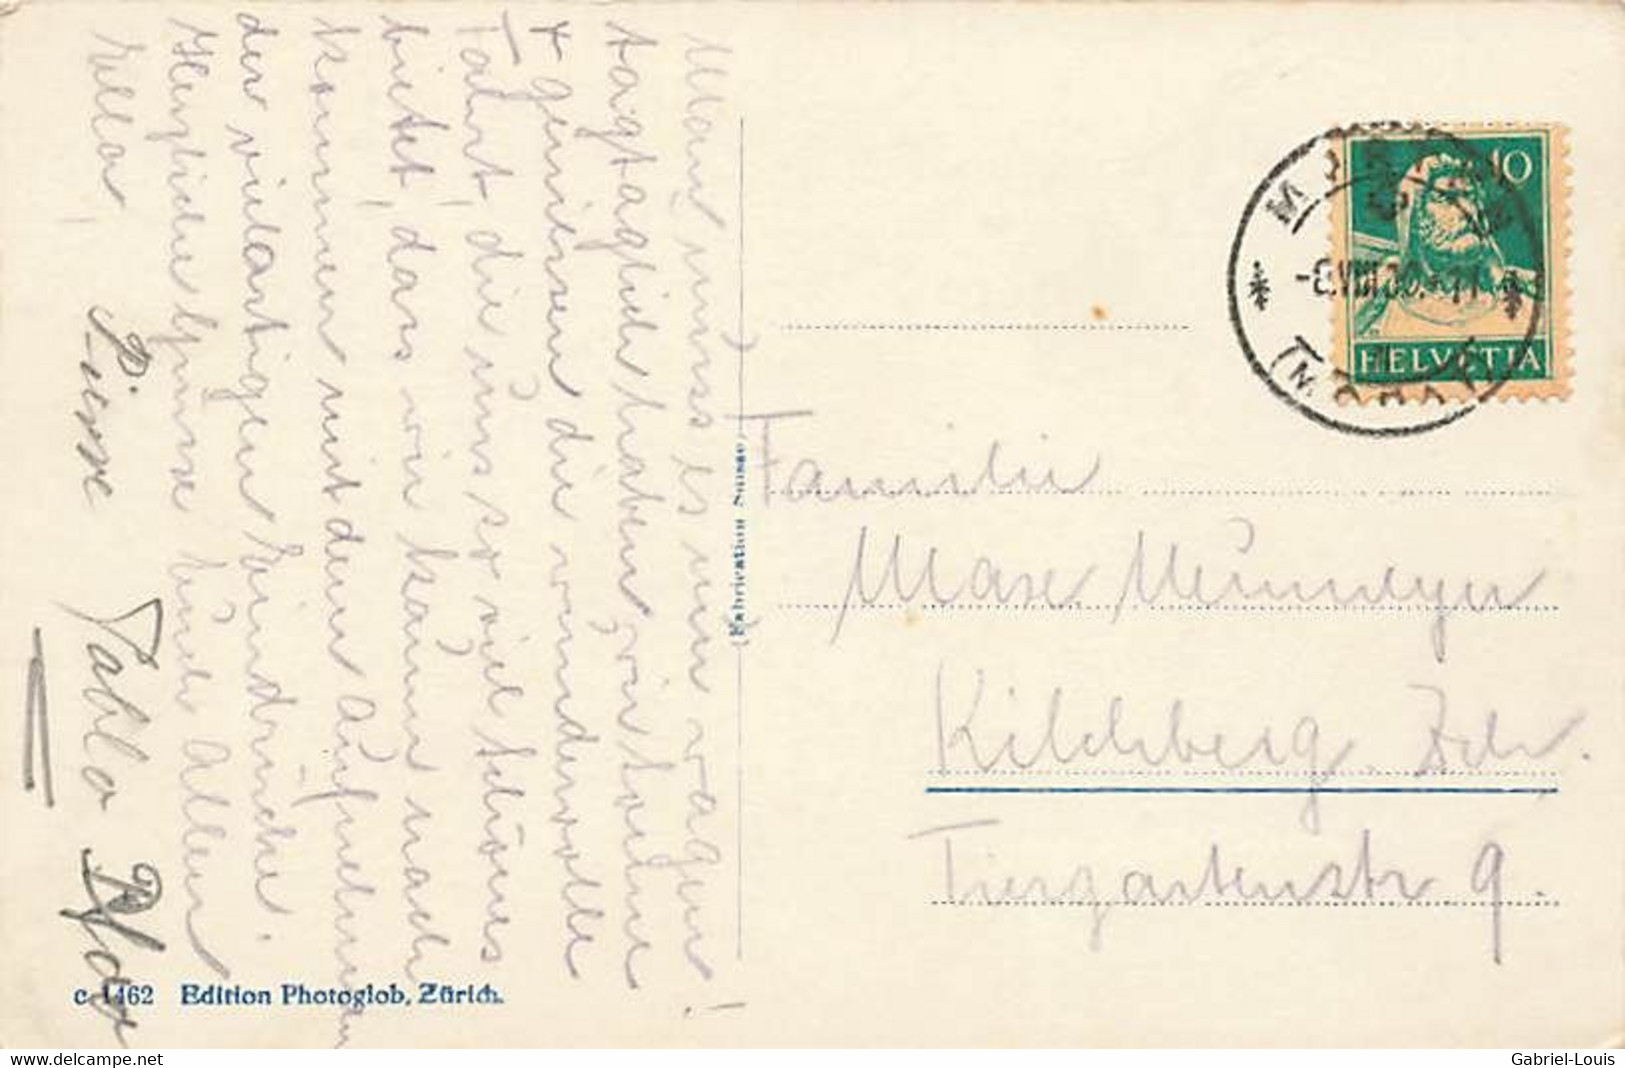 Man muss es nur wagen!
tagtäglich haben wir Sonne
+ geniessen die wundervolle
Fahrt, die uns so viel schönes
bietet, dass wir kaum nach
kommen mit dem Aufnehmen
der vielartigen Eindrücke.
Herzliche Grüsse Euch Allen
Ella,
Pierre
Pablo
c 1462 Edition Photoglob, Zürich.
(Fabrication Suisse)
10
HELVETIA
-8.VIII.30.-11
Familie
Max
Kilchberg. Zch.
Tiergartenstr 9.
www.delcampe.net
Gabriel-Louis